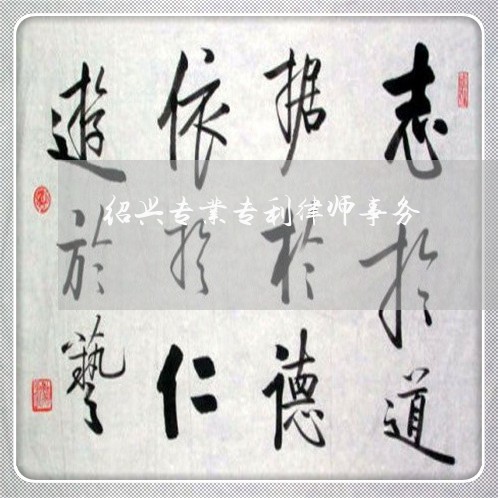 志於道
据於德
依於仁
遊於藝
绍兴专業专利律师事务